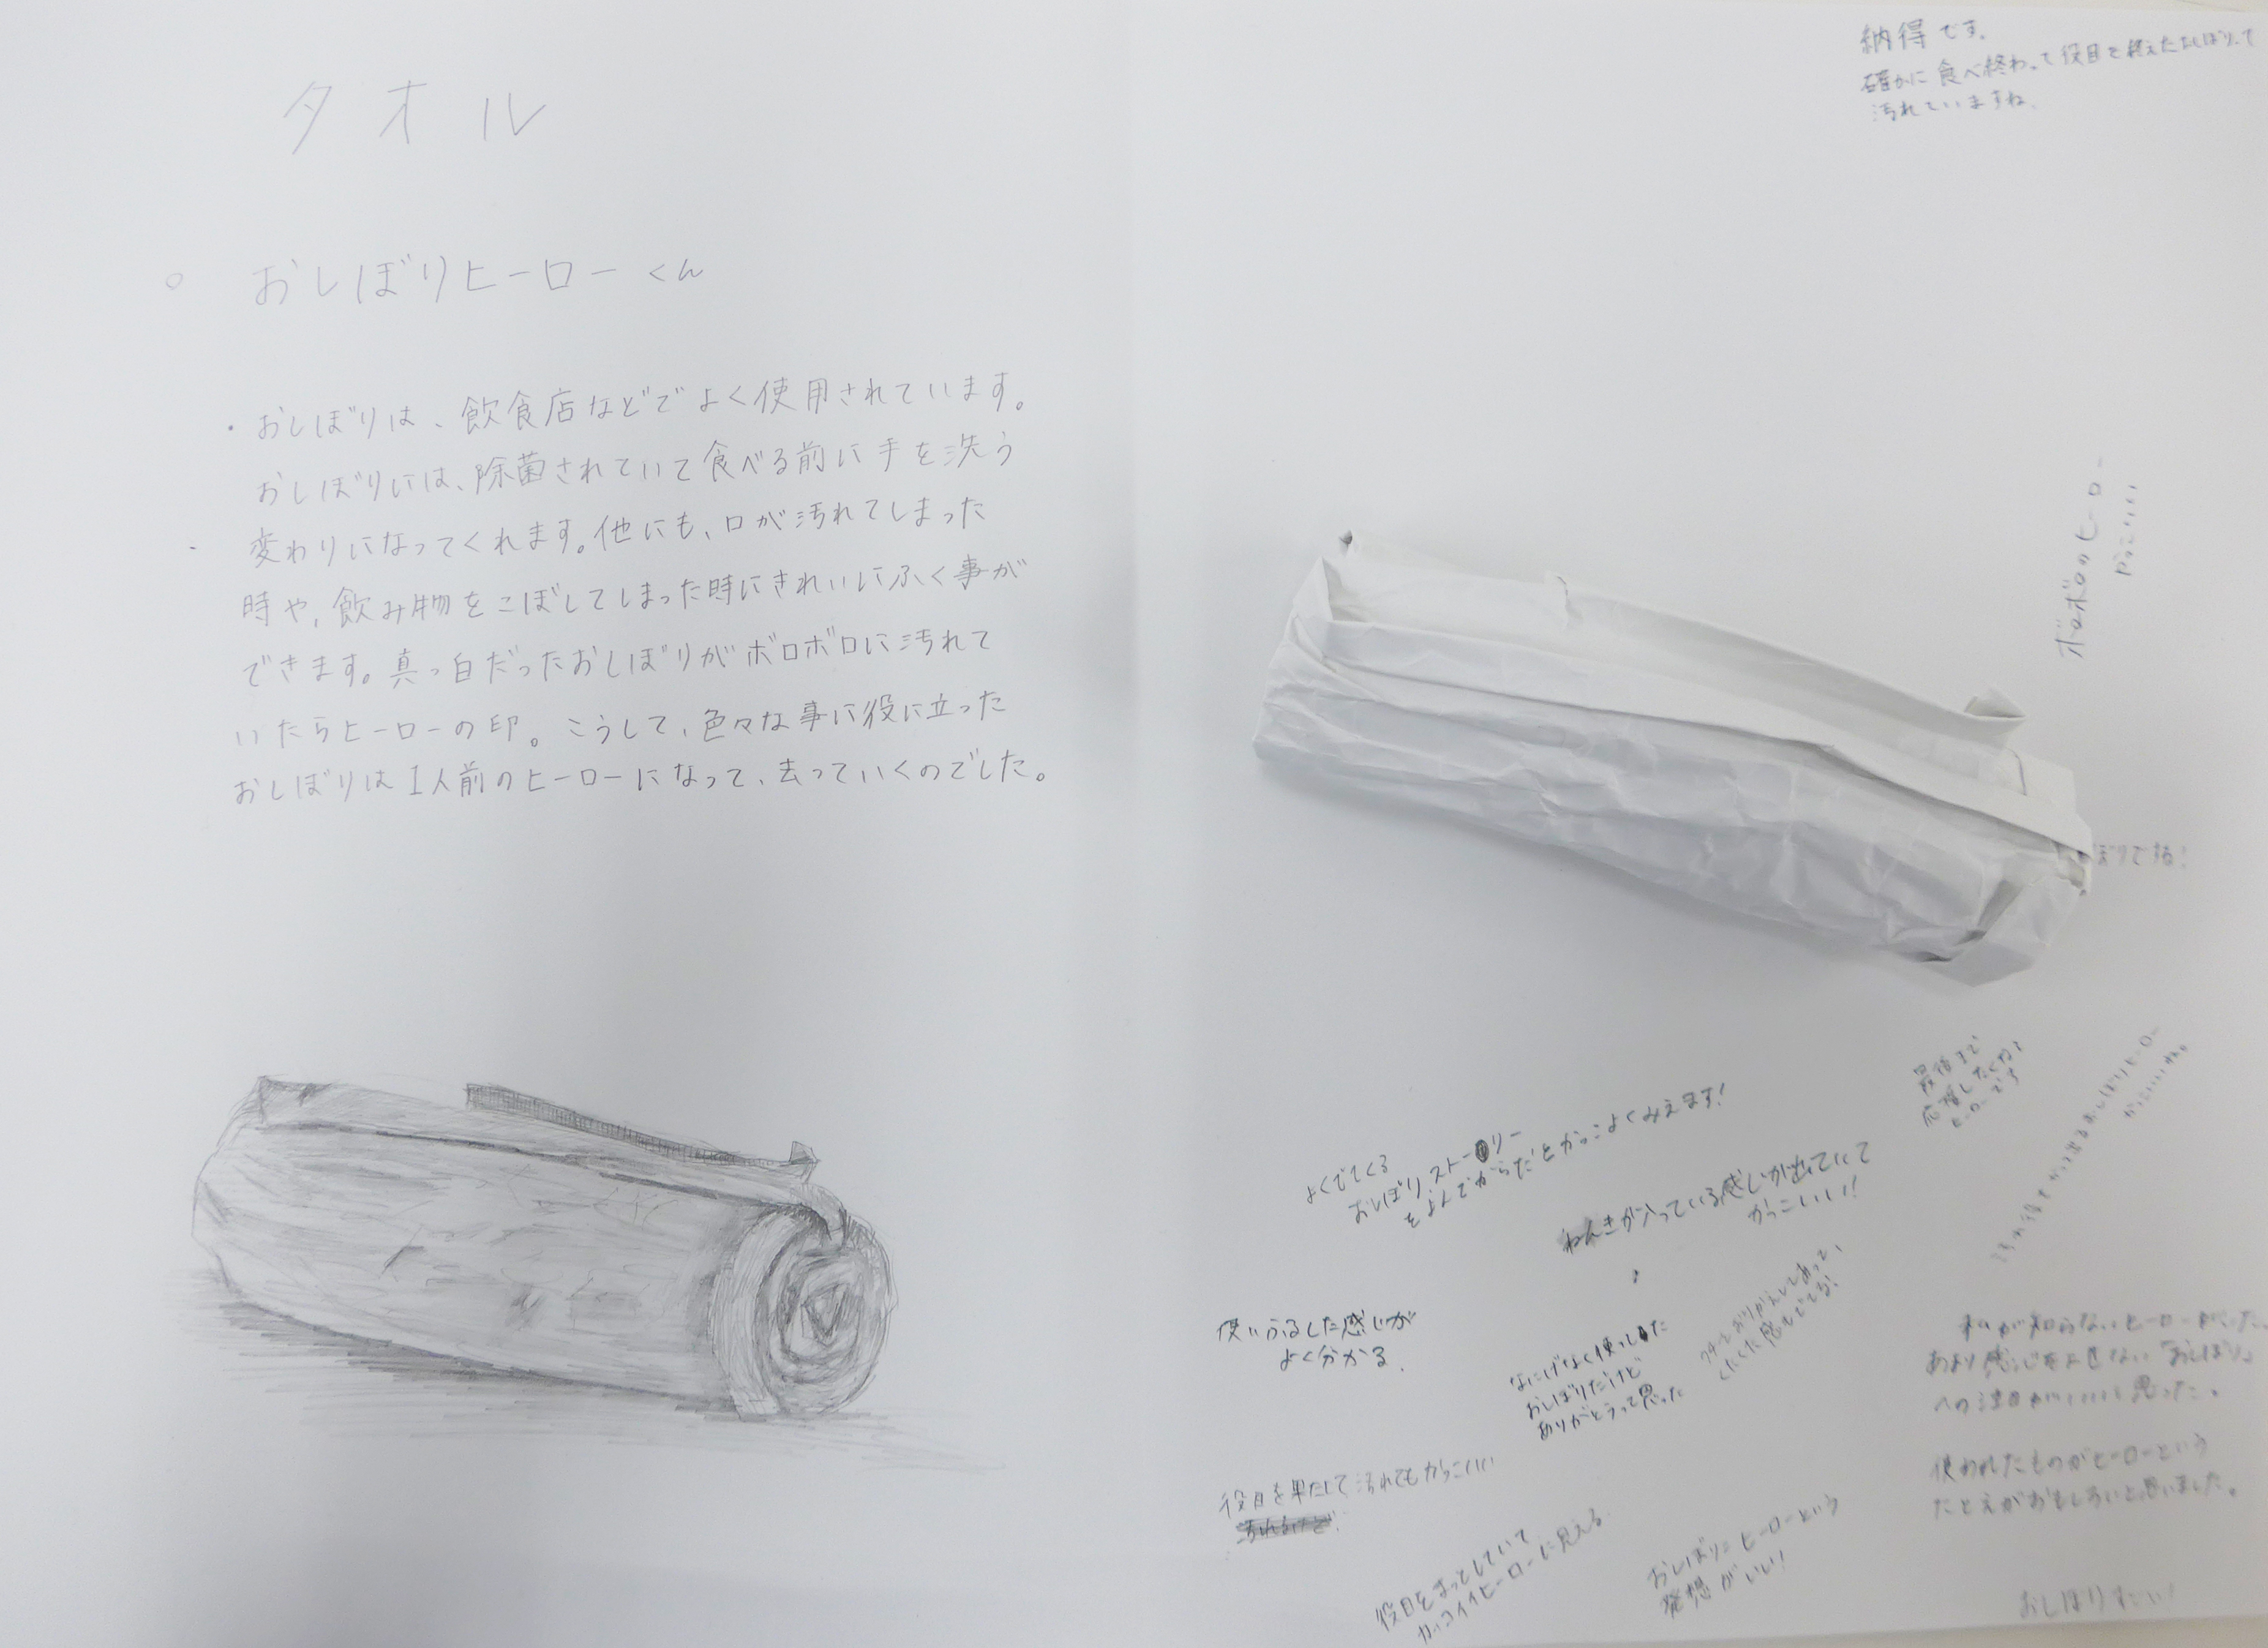 タオル
おしぼりヒーローくん
・おしぼりは、飲食店などでよく使用されています。
おしぼりには、除菌されていて食べる前に手を洗う
変わりになってくれます。他にも、口が汚れてしまった
時や、飲み物をこぼしてしまった時にきれいにふく事が
できます。真っ白だったおしぼりがボロボロに汚れて
いたらヒーローの印。こうして、色々な事に役に立った
おしぼりは1人前のヒーローになって、去っていくのでした。
納得です。
確かに食べ終わって役目を終えたおしぼりって
汚れていますね。
ボロボロのヒーロー
かっこいい
ぼりである!
最後まで
応援したくなる
ヒーローです
おしぼりヒーロー
かっこいいね。
よくでてくる
おしぼり、ストーリー
をよんでからだとかっこよくみえます!
ねんきが入っている感じが出ていて
かっこいい!!
使いふるした感じが
よく分かる。
なにげなく使ってた
おしぼりだけど
ありがとうって思った
くたくた感もでてる!
私が知らないヒーローがいた。
あまり感じさせない「おしぼり」
への注目がいいと思った。
使われたものがヒーローという
たとえがおもしろいと思いました。
役目を果たして汚れてもかっこいい
役目をまっとしていて
カッコイイヒーローに見える
おしぼりにヒーローという
発想がいい!
おしぼりすごい!